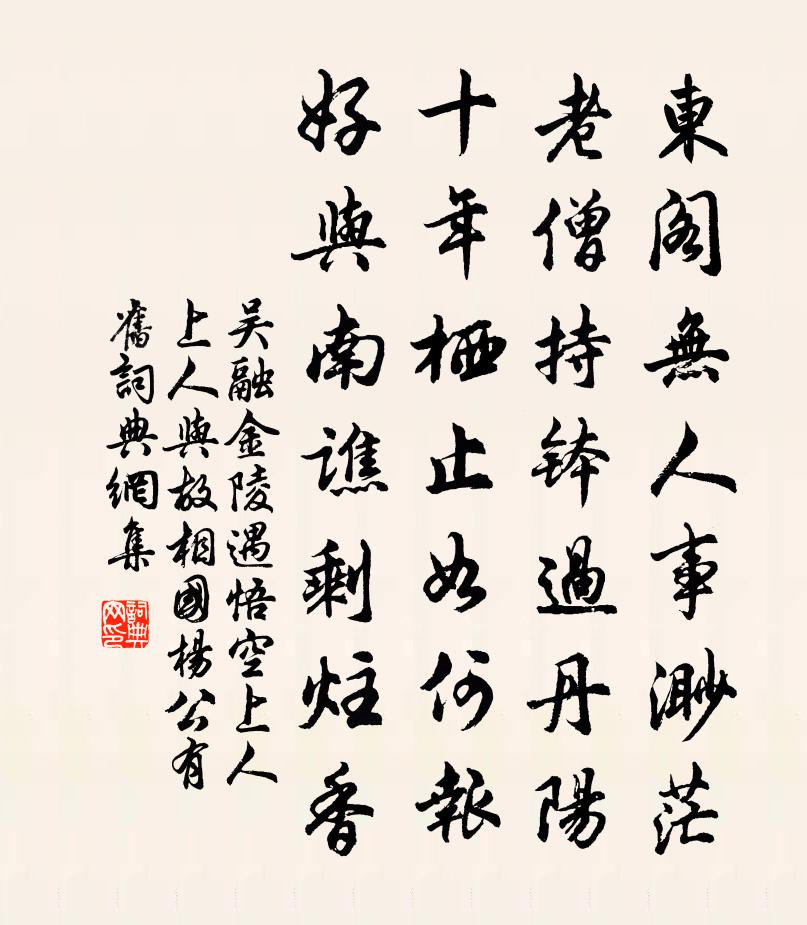 東閣無人事渺茫
老僧持鉢過丹陽
十年栖止如何報
好與南譙剩炷香
吴融金陵遇悟空上人
上人與故相國楊公有
舊詞典網集
詞典
网印